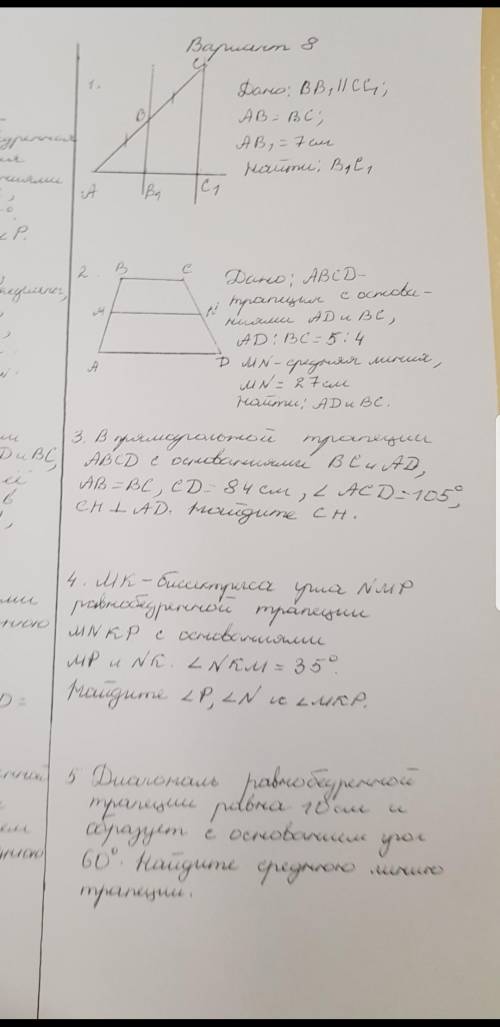 Вариант 8
1.
C
B
A
B₁
C₁
Дано: BB₁ || CC₁;
AB = BC;
AB₁ = 7см
Найти: B₁C₁
2.
B
C
M
N
A
D
Дано: ABCD-
трапеция с основа-
ниями AD и BC,
AD : BC = 5 : 4
MN - средняя линия,
MN = 27см
Найти: AD и BC.
3. В прямоугольной трапеции
ABCD с основаниями BC и AD,
AB = BC, CD = 84 см, ∠ ACD = 105°,
CH ⊥ AD. Найдите CH.
4. MK - биссектриса угла NMP
равнобедренной трапеции
MNKP с основаниями
MP и NK. ∠NKM = 35°.
Найдите ∠P, ∠N и ∠MKP.
5 Диагональ равнобедренной
трапеции равна 10 см и
образует с основанием угол
60°. Найдите среднюю линию
трапеции.
∠P.
D и BC,
D =